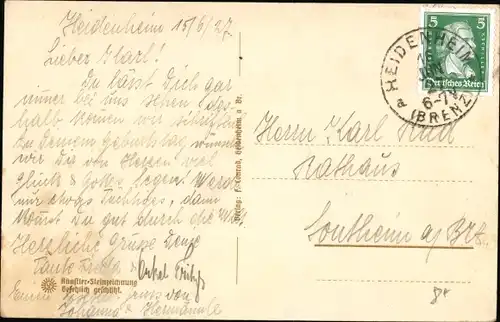 Heidenheim 15/6/27
Lieber Karl!
Du läßt Dich gar
nimmer bei uns sehen des-
halb kommen wir schriftlich
Zu Deinem Geburtstag wünschen
wir Dir von Herzen viel
Glück & Gottes Segen! Werde
nur etwas tüchtiges, dann
kommst Du gut durch die Welt
Herzliche Grüsse Deine
Tante &
Onkel Fritz
Künstler-Steinzeichnung
Gesetzlich geschützt.
von
Johanna & Hermännle
Heidenheim a. Br.
5 5
Deutsches Reich
HEIDENHEIM
6-7
(BRENZ)
Herrn Karl
Rathaus
Sontheim a/Brz.